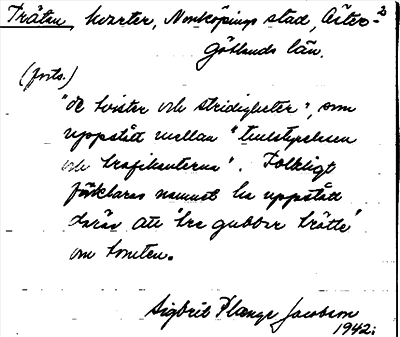 Trätan kvarter, Norrköpings stad, Öster- 2
götlands län.
(forts.)
"de tvister och stridigheter", som
uppstått mellan "tullstyrelsen
och trafikanterna". Folkligt
förklaras namnet ha uppstått
därav att 'tre gubbar trätte'
om tomten.
Sigbrit Plænge Jacobson
1942.